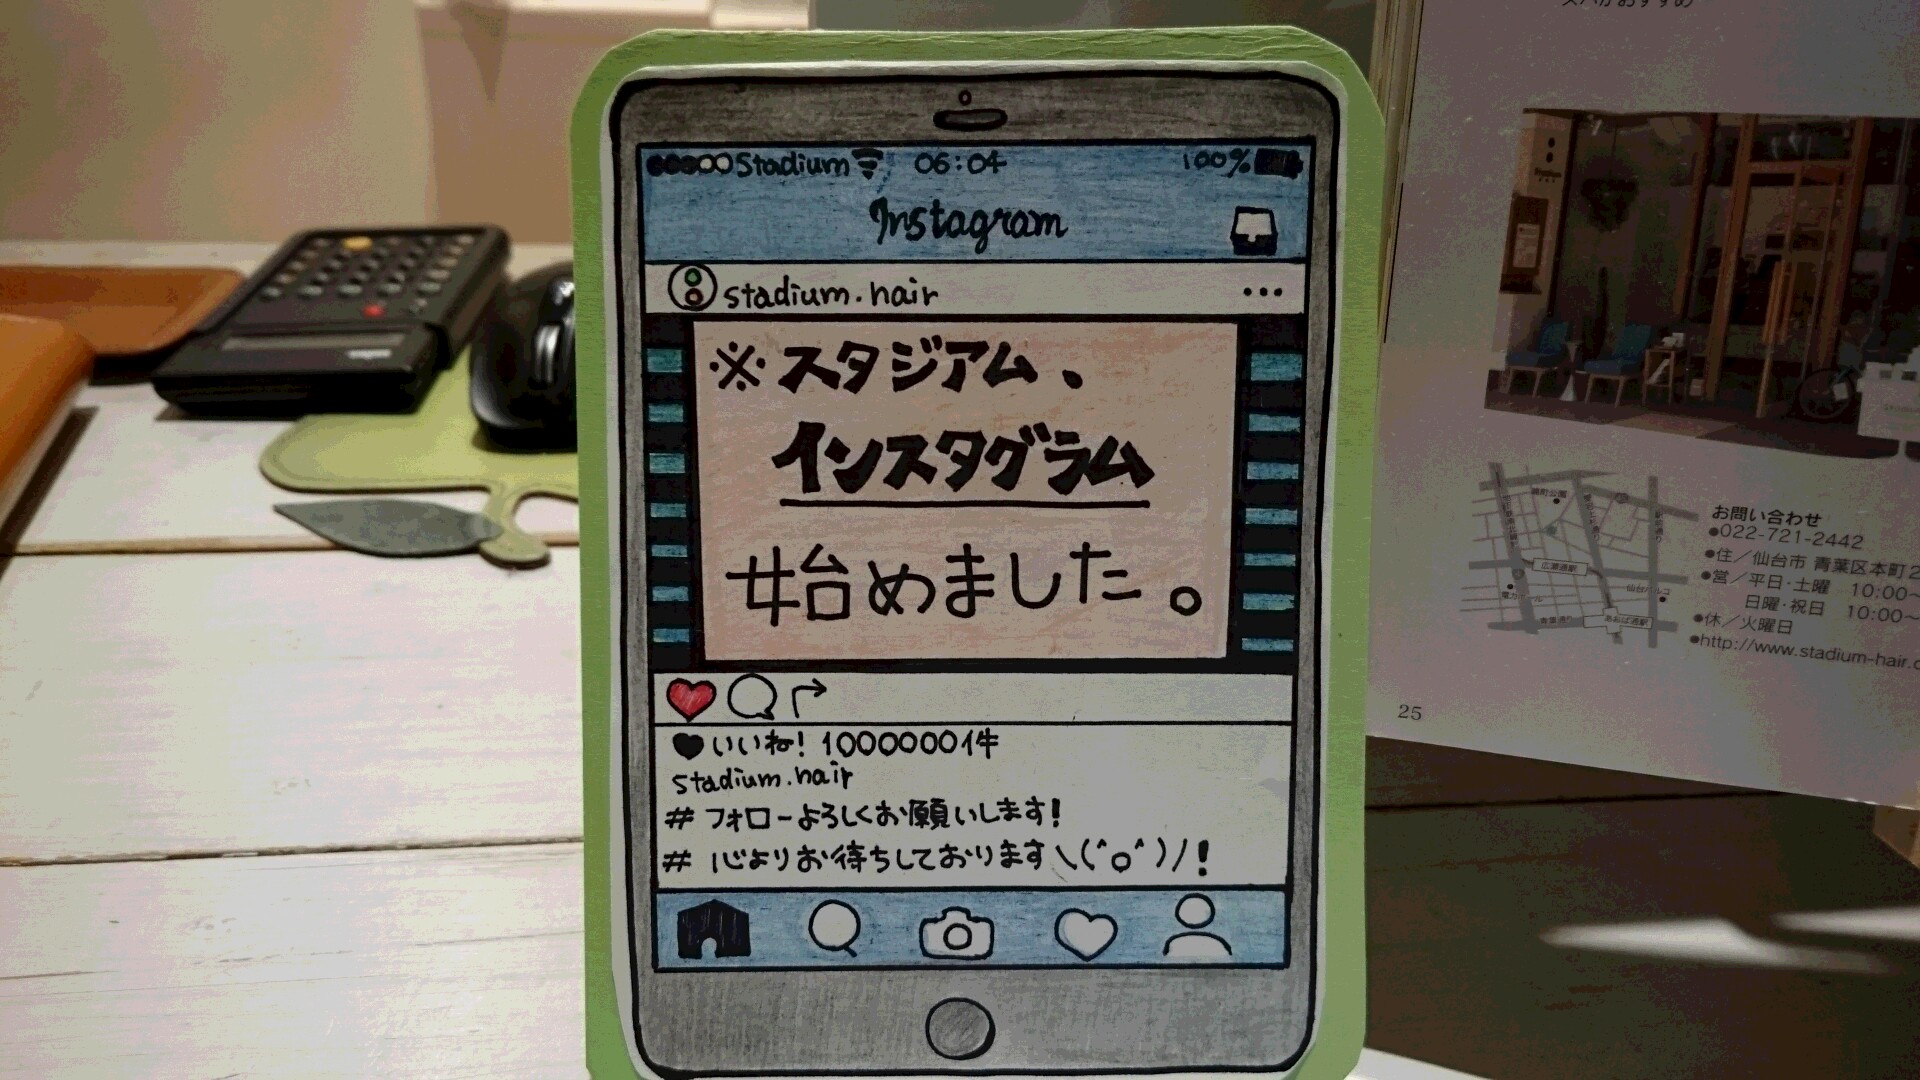 Stadium 06:04 100%
Instagram
stadium.hair
※スタジアム、
インスタグラム
始めました。
いいね! 1000000件
stadium.hair
# フォローよろしくお願いします!
# 心よりお待ちしております\(^o^)/!
お問い合わせ
●022-721-2442
●住/仙台市 青葉区本町2
●営/平日・土曜 10:00~
日曜・祝日 10:00~
●休/火曜日
●http://www.stadium-hair.c
広瀬通駅
あおば通駅
25